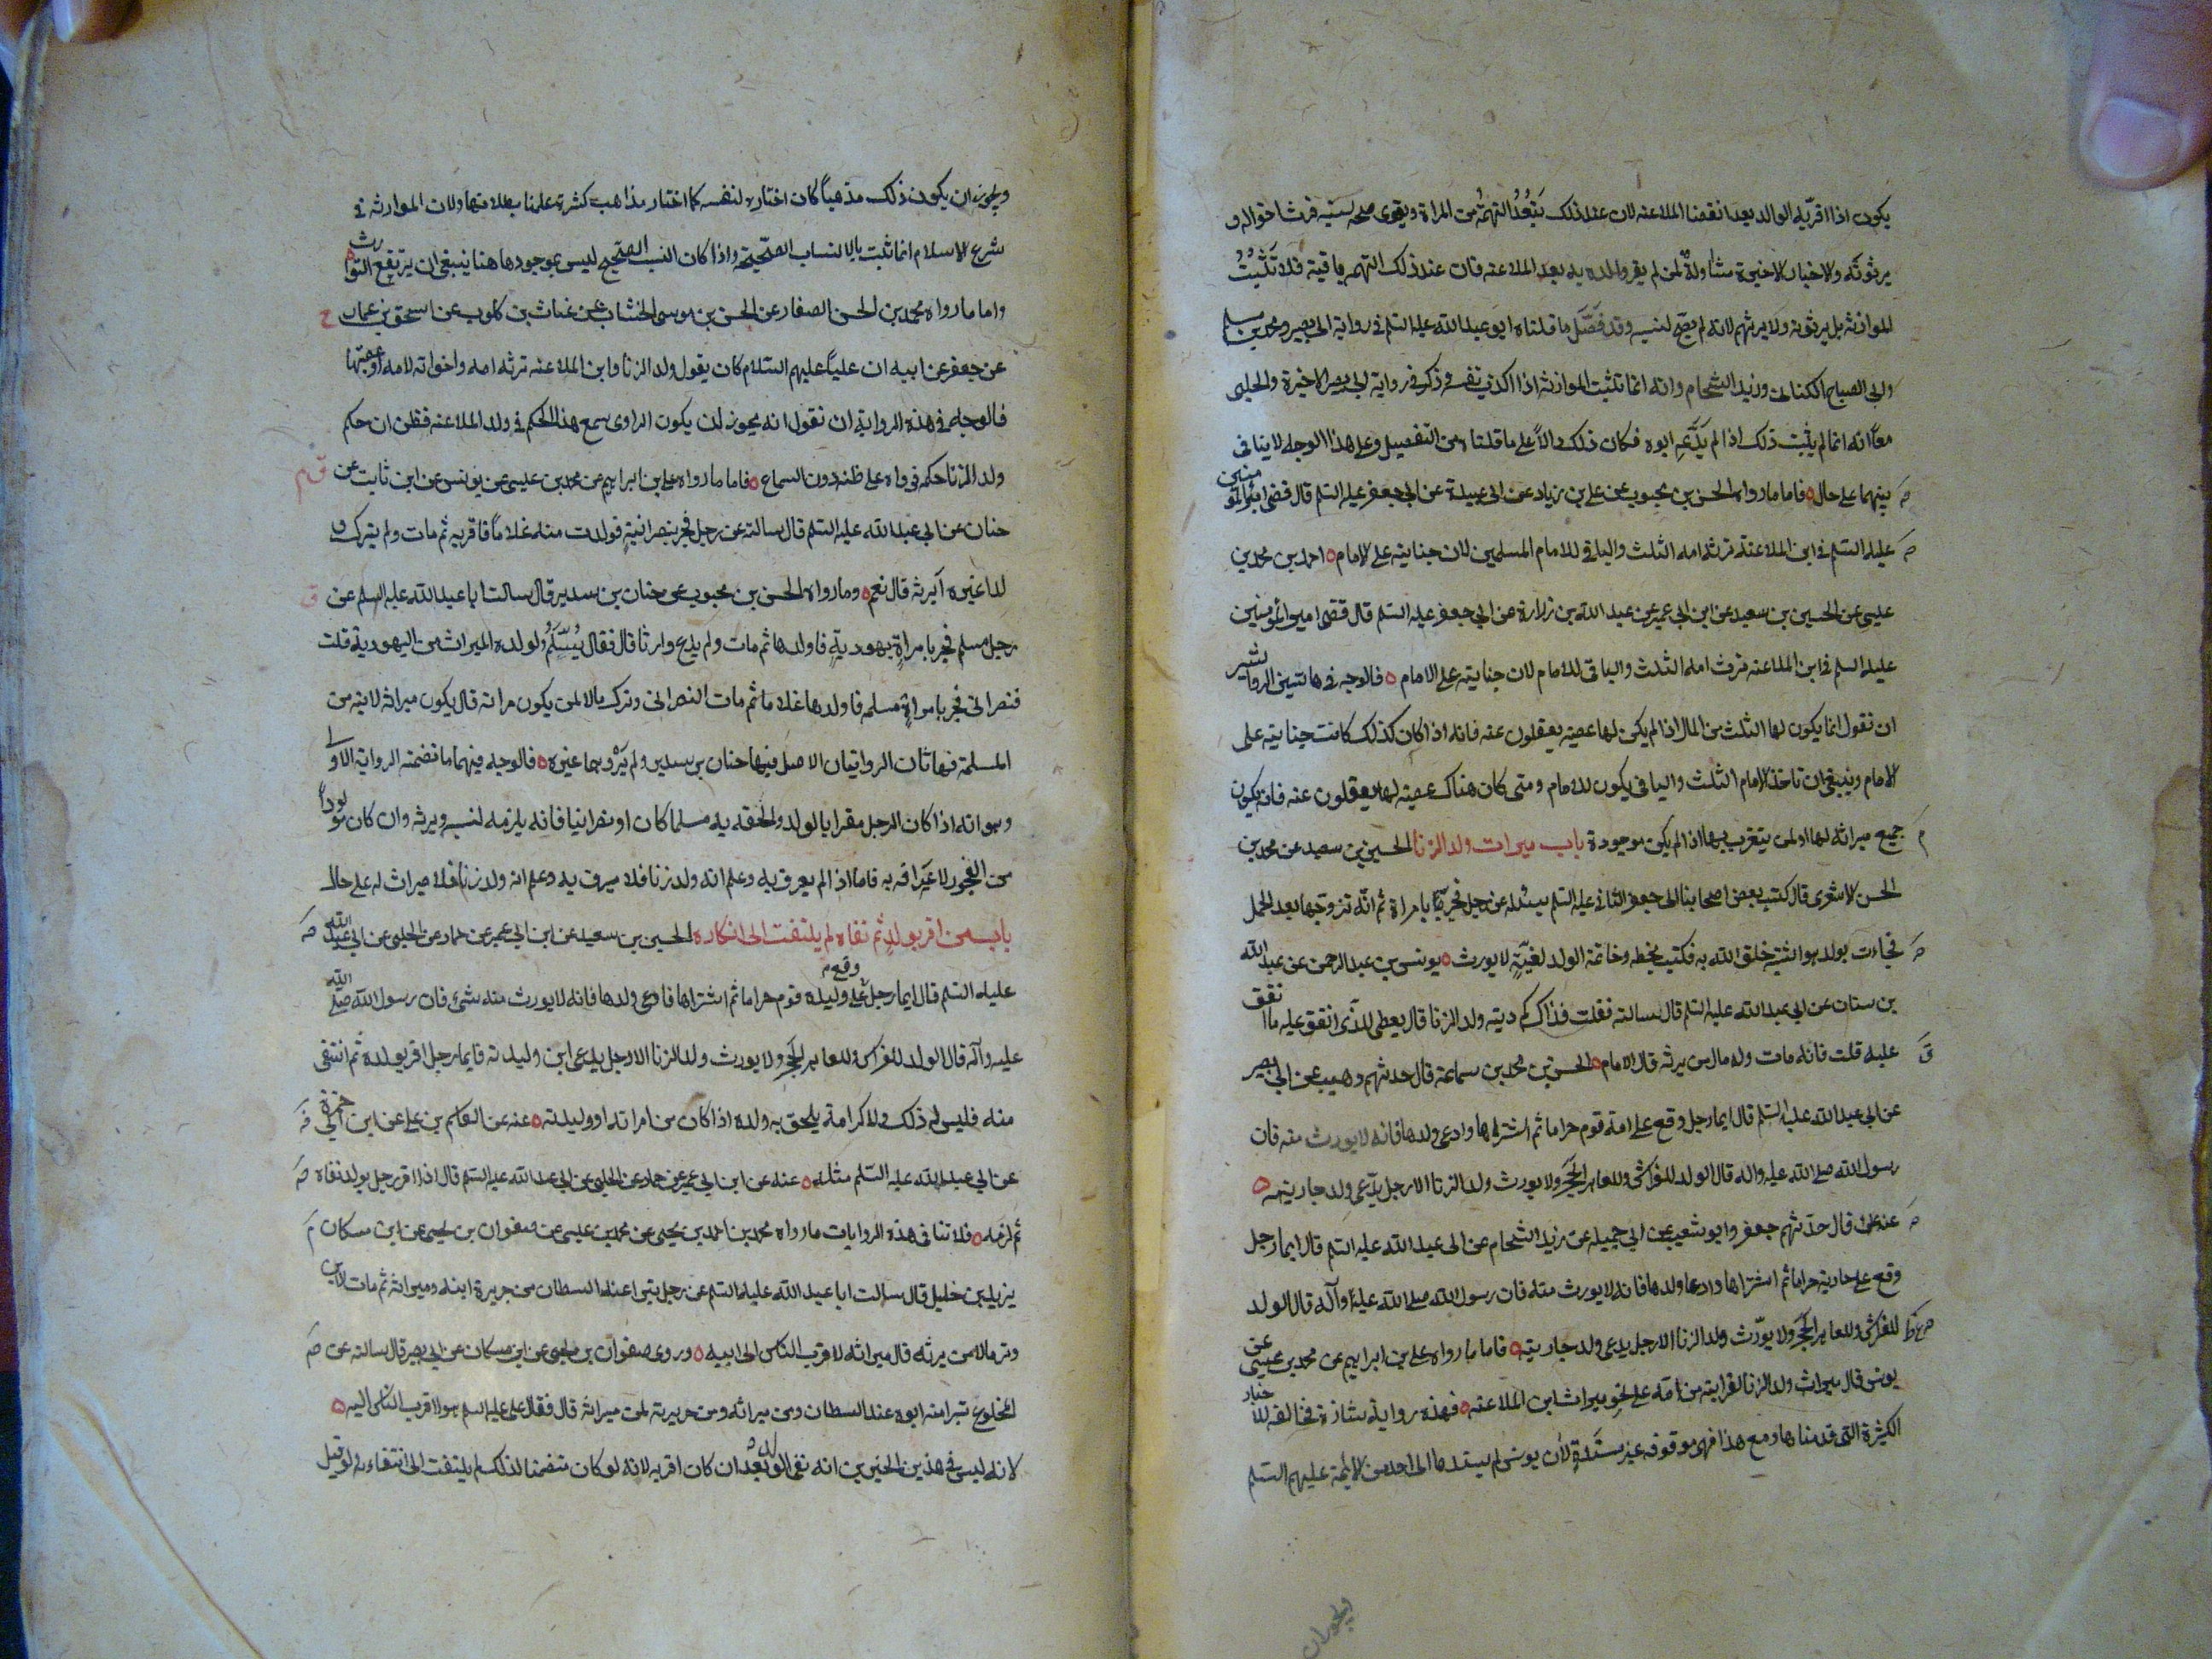 يكون اذا اقر به الوالد بعد انقضا الملاعنه لان عند ذلك يبعد التهمة من المراة ويقوى صحة نسبه فيرث اخواله و
يرثونه والاخبار الاخيرة متناولة لمن لم يقر والده به بعد الملاعنه فان عند ذلك التهمه باقية فلا تثبت
الموارثه بل يرثونه ولا يرثهم لانه لم يصح نسبه وقد فصل ما قلناه ابو عبد الله عليه السلم في رواية ابي بصير ومحمد بن مسلم
وابي الصباح الكناني وزيد الشحام وانه انما تثبت الموارثة اذا اكذب نفسه وذكر في رواية ابي بصير الاخيرة والحلبي
معا انه انما لم يثبت ذلك اذا لم يدعه ابوه فكان ذلك دالا على ما قلناه من التفصيل وعلى هذا الوجه لا ينافى
بينهما على حال فاما ما رواه الحسن بن محبوب عن على بن زياد عن ابى عبيدة عن ابى جعفر عليه السلم قال قضى امير المؤمنين
عليه السلم في ابن الملاعنة ترثه امه الثلث والباقى للامام المسلمين لان جنايته على الامام احمد بن محمد بن
عيسى عن الحسين بن سعيد عن ابن ابى عمير عن عبد الله بن زرارة عن ابى جعفر عليه السلم قال قضى امير المؤمنين
عليه السلم في ابن الملاعنه ترث امه الثلث والباقى للامام لان جنايته على الامام فالوجه في هاتين الروايتين
ان نقول انما يكون لها الثلث من المال اذا لم يكن لها عصبه يعقلون عنه فانه اذا كان كذلك كانت جنايته على
الامام وينبغى ان تاخذ الامام الثلث والباقى يكون للامام ومتى كان هناك عصبه لها يعقلون عنه فانه يكون
جميع ميراثه لها او لمن يتقرب بها اذا لم يكن موجودة باب ميراث ولد الزنا الحسين بن سعيد عن محمد بن
الحسن الاشعرى قال كتب بعض اصحابنا الى جعفر الثانى عليه السلم يسئله عن رجل فجر بامراة ثم انه تزوجها بعد الحمل
فجاءت بولد هو اشبه خلق الله به فكتب بخطه وخاتمه الولد لغية لا يورث يونس بن عبد الرحمن عن عبد الله
بن سنان عن ابى عبد الله عليه السلم قال سالته فقلت فذاك كم دية ولد الزنا قال يعطى الذى انفق عليه ما انفق
عليه قلت فانه مات وله مال من يرثه قال الامام الحسن بن محمد بن سماعة قال حدثهم وهيب عن ابى بصير
عن ابى عبد الله عليه السلم قال ايما رجل وقع على امة قوم حراما ثم اشتراها وادعى ولدها فانه لا يورث منه فان
رسول الله صلى الله عليه واله قال الولد للفراش وللعاهر الحجر ولا يورث ولد الزنا الا رجل يدعى ولد جاريته
عنه على قال حدثهم جعفر وابو شعيب عن ابى جميله عن زيد الشحام عن ابى عبد الله عليه السلم قال ايما رجل
وقع على جارية حراما ثم اشتراها وادعا ولدها فانه لا يورث منه فان رسول الله صلى الله عليه وآله قال الولد
للفراش وللعاهر الحجر ولا يورث ولد الزنا الا رجل يدعى ولد جاريته فاما ما رواه على بن ابراهيم عن محمد بن عيسى عن
يونس قال ميراث ولد الزنا لقرابته من امه على نحو ميراث ابن الملاعنه فهذه رواية شاذة مخالفه للاخبار
الكثيرة التى قدمناها ومع هذا فهى موقوفه غير مسندة لان يونس لم يسندها الى احد من الائمة عليهم السلم
ويجوز ان
ويجوز ان يكون ذلك مذهبا كان اختاره لنفسه كما اختار مذاهب كثيرة علمنا بطلانها ولان الموارثه في
شرع الاسلام انما ثبت بالانساب الصحيحة واذا كان النسب الصحيح ليس بموجود هاهنا ينبغى ان يرتفع التوارث
واما ما رواه محمد بن الحسن الصفار عن الحسن بن موسى الخشاب عن غياث بن كلوب عن اسحق بن عمار
عن جعفر عن ابيه ان عليا عليهم السلام كان يقول ولد الزنا وابن الملاعنه ترثه امه واخواته لامه او عصبتها
فالوجه في هذه الرواية ان نقول انه يجوز ان يكون الراوى سمع هذا الحكم في ولد الملاعنه فظن ان حكم
ولد الزنا حكمه فرواه على ظنه دون السماع فاما ما رواه على بن ابراهيم عن محمد بن عيسى عن يونس عن ابن ثابت عن
حنان عن ابى عبد الله عليه السلم قال سالته عن رجل فجر بنصرانية فولدت منه غلاما فاقر به ثم مات ولم يترك و
لدا غيره ايرثه قال نعم وما رواه الحسن بن محبوب عن حنان بن سدير قال سالت ابا عبد الله عليه السلم عن
رجل مسلم فجر بامراة يهودية فاولدها ثم مات ولم يدع وارثا قال فقال يسلم لولده الميراث من اليهودية قلت
فنصرانى فجر بامراة مسلمه فاولدها غلاما ثم مات النصرانى وترك مالا لمن يكون ميراثه قال يكون ميراثه لابنه من
المسلمة فهاتان الروايتان الاصل فيهما حنان بن سدير ولم يروهما غيره فالوجه فيهما ما تضمنته الرواية الاولى
وهو انه اذا كان الرجل مقرا بالولد والحقه به مسلما كان او نصرانيا فانه يلزمه نسبه ويرثه وان كان مولودا
من الفجور لاعترافه به فاما اذا لم يعرف به وعلم انه ولد زنا فلا ميراث له على حال
باب من اقر بولد ثم نفاه لم يلتفت الى انكاره الحسين بن سعيد عن ابن ابى عمير عن حماد عن الحلبى عن ابى عبد الله
عليه السلم قال ايما رجل وقع على وليدة قوم حراما ثم اشتراها فادعى ولدها فانه لا يورث منه شئ فان رسول الله صلى الله
عليه وآله قال الولد للفراش وللعاهر الحجر ولا يورث ولد الزنا الا رجل يدعى ابن وليدته وايما رجل اقر بولده ثم انتفى
منه فليس له ذلك ولا كرامة يلحق به ولده اذا كان من امراته او وليدته عنه عن القاسم بن على عن ابن ابى حمزة
عن ابى عبد الله عليه السلم مثله عنه عن ابن ابى عمير عن حماد عن الحلبى عن ابى عبد الله عليه السلم قال اذا اقر رجل بولد نفاه
ثم لزمه فلا تنافى هذه الروايات ما رواه محمد بن احمد بن يحيى عن محمد بن عيسى عن صفوان بن يحيى عن ابن مسكان
يزيد بن خليل قال سالت ابا عبد الله عليه السلم عن رجل تبرا عند السلطان من جريرة ابنه وميراثه ثم مات الابن
وترك مالا من يرثه قال ميراثه لاقرب الناس الى ابيه وروى صفوان بن يحيى عن ابن مسكان عن ابى بصير قال سالته عن
المخلوع تبرا منه ابوه عند السلطان ومن ميراثه ومن جريرته لمن ميراثه قال فقال على عليه السلم هو لاقرب الناس اليه
لانه ليس في هذين الخبرين انه نفى الولد بعد ان كان اقر به لانه لو كان متضمنا لذلك لم يلتفت الى انتفاءه ولو قيل